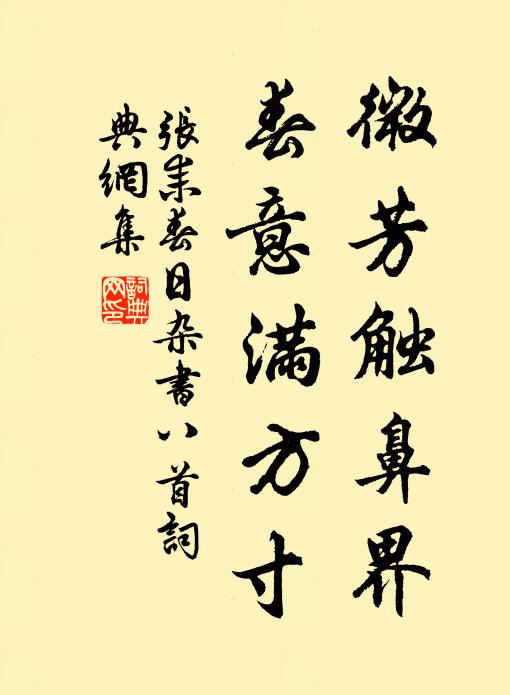 微芳触鼻界
春意滿方寸
張耒春日杂書八首詞
典網集
詞典
网印